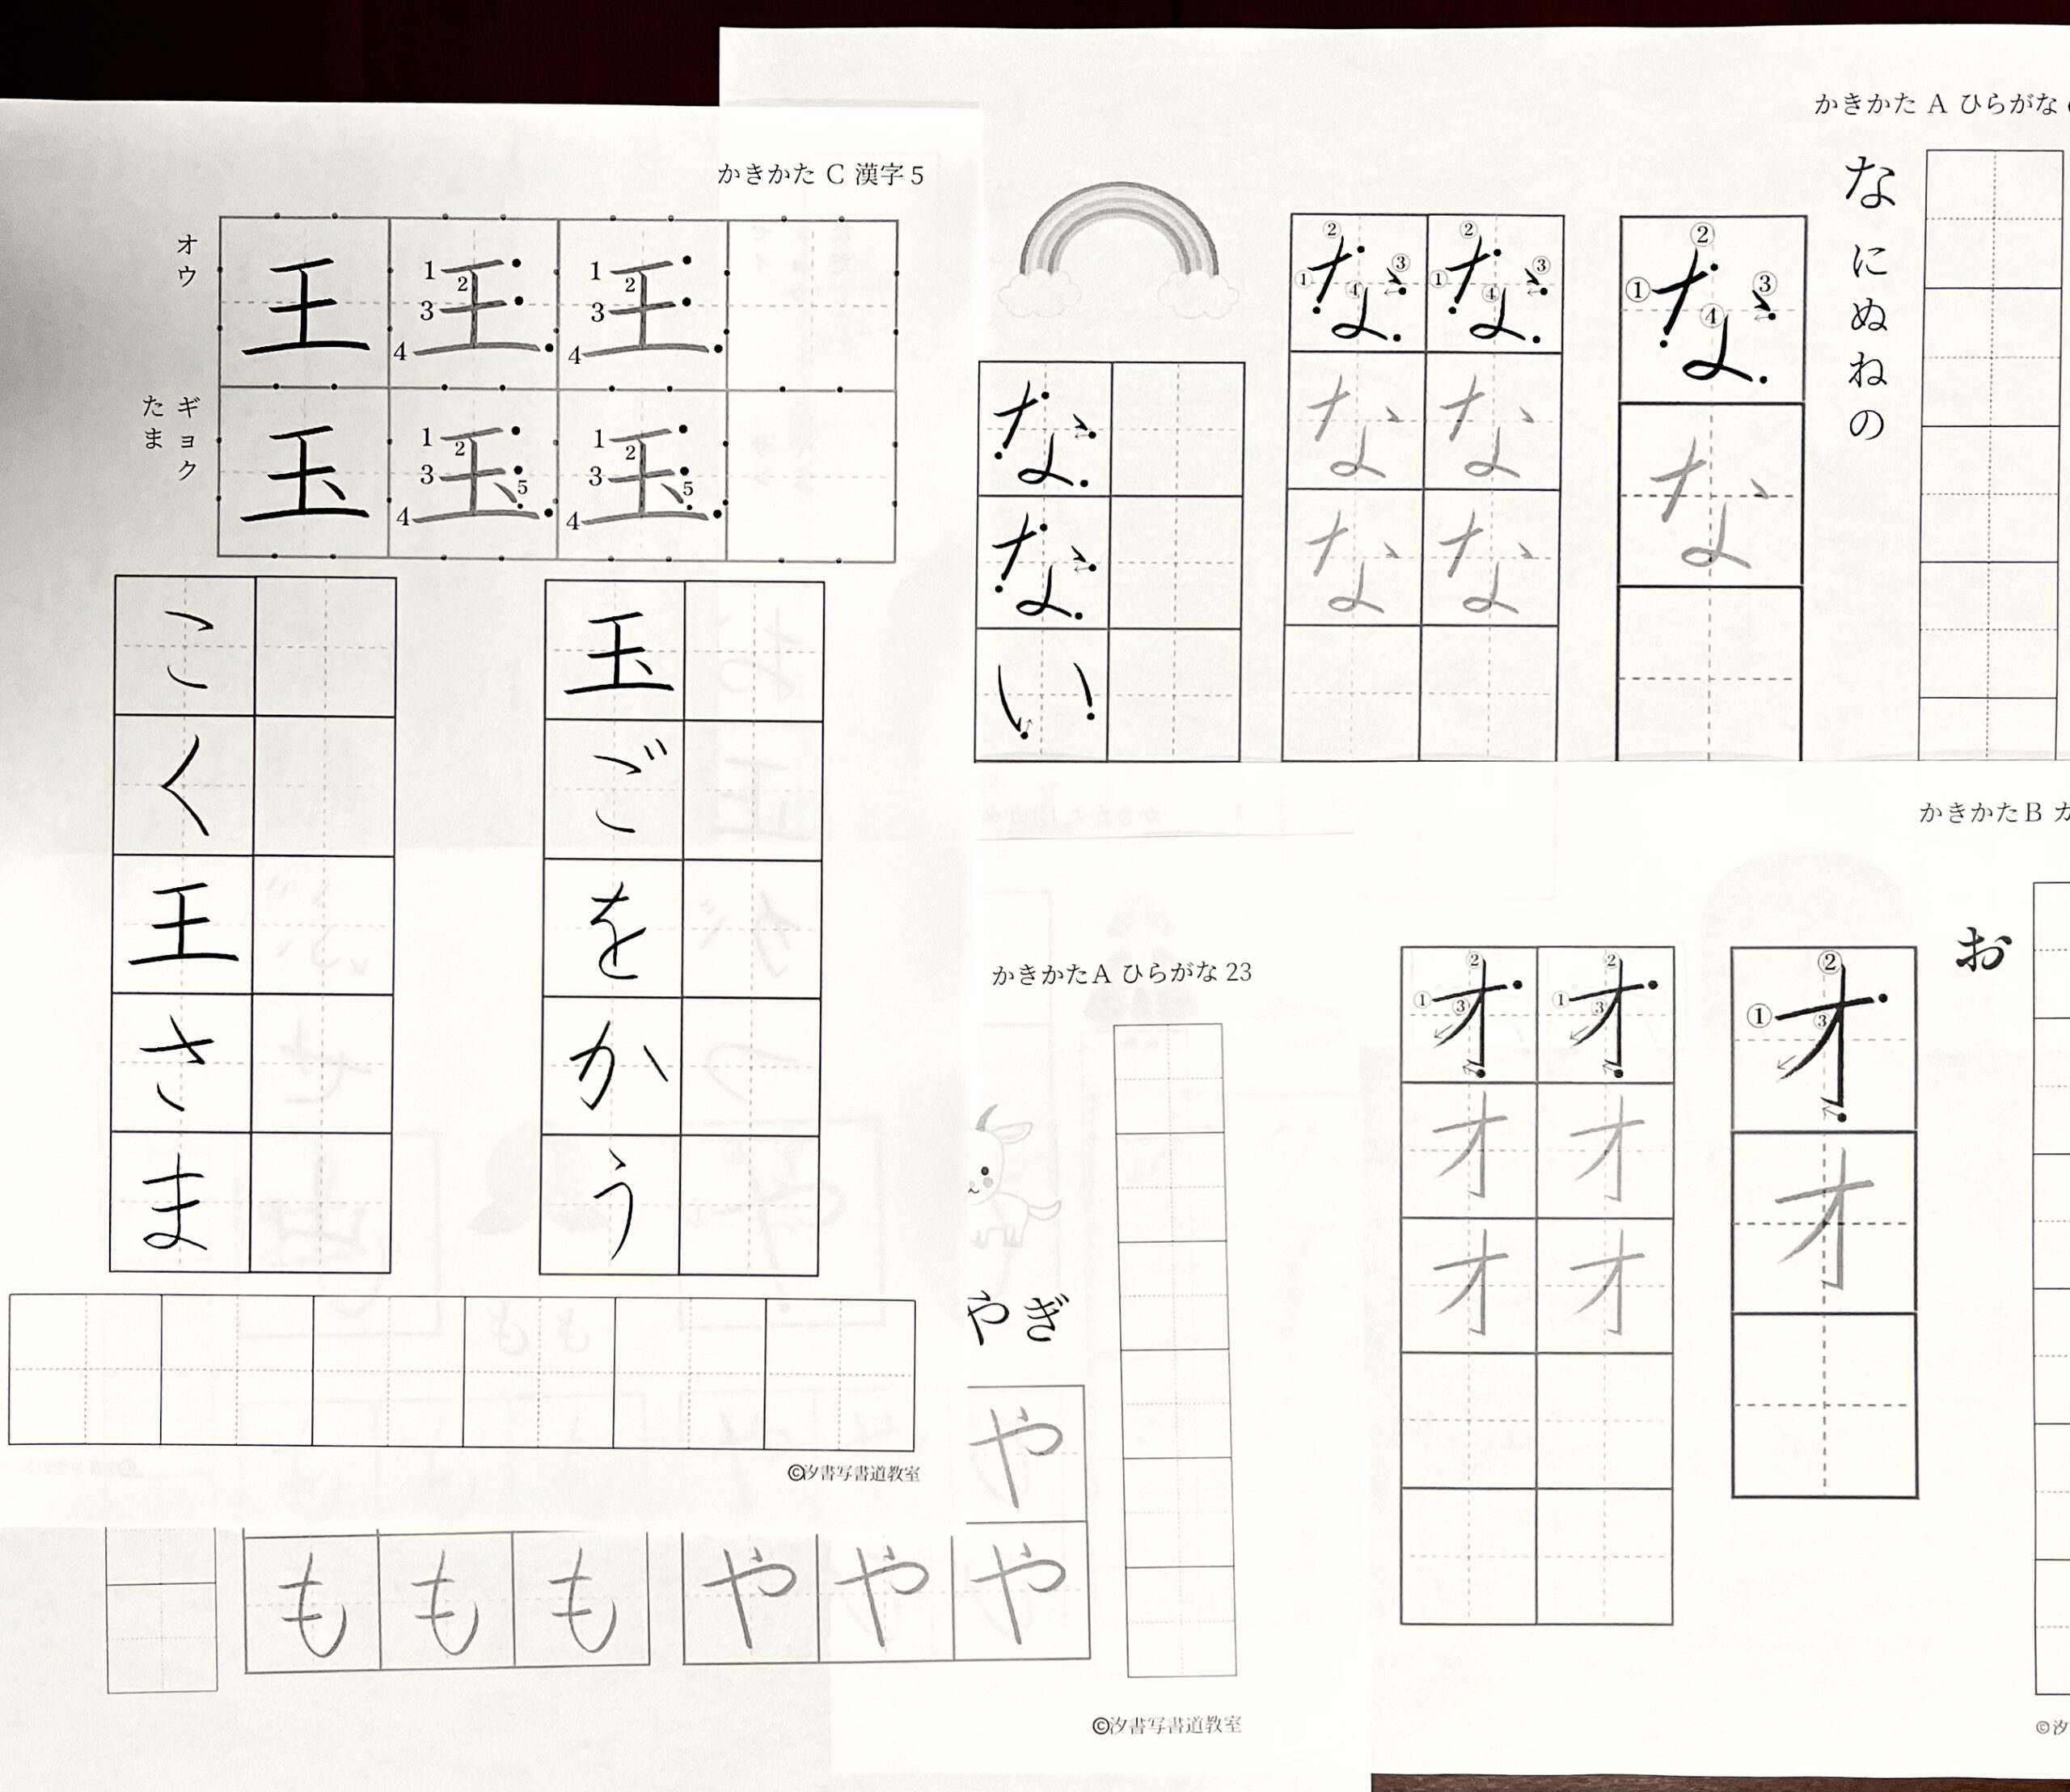 かきかた C 漢字 5
オウ
王 王 王
1 2 3 4
1 2 3 4
ギョク
たま
玉 玉 玉
1 2 3 4 5
1 2 3 4 5
玉ごをかう
こく王さま
©汐書写書道教室
かきかた A ひらがな
な にぬねの
な
① ② ③ ④
な
な な
① ② ③ ④
① ② ③ ④
な な
な な
なない
かきかた B カ
お
オ
① ② ③
オ
オ オ
① ② ③
① ② ③
オ オ
オ オ
©汐
かきかたA ひらがな 23
やぎ
や
や や や
も も も
©汐書写書道教室